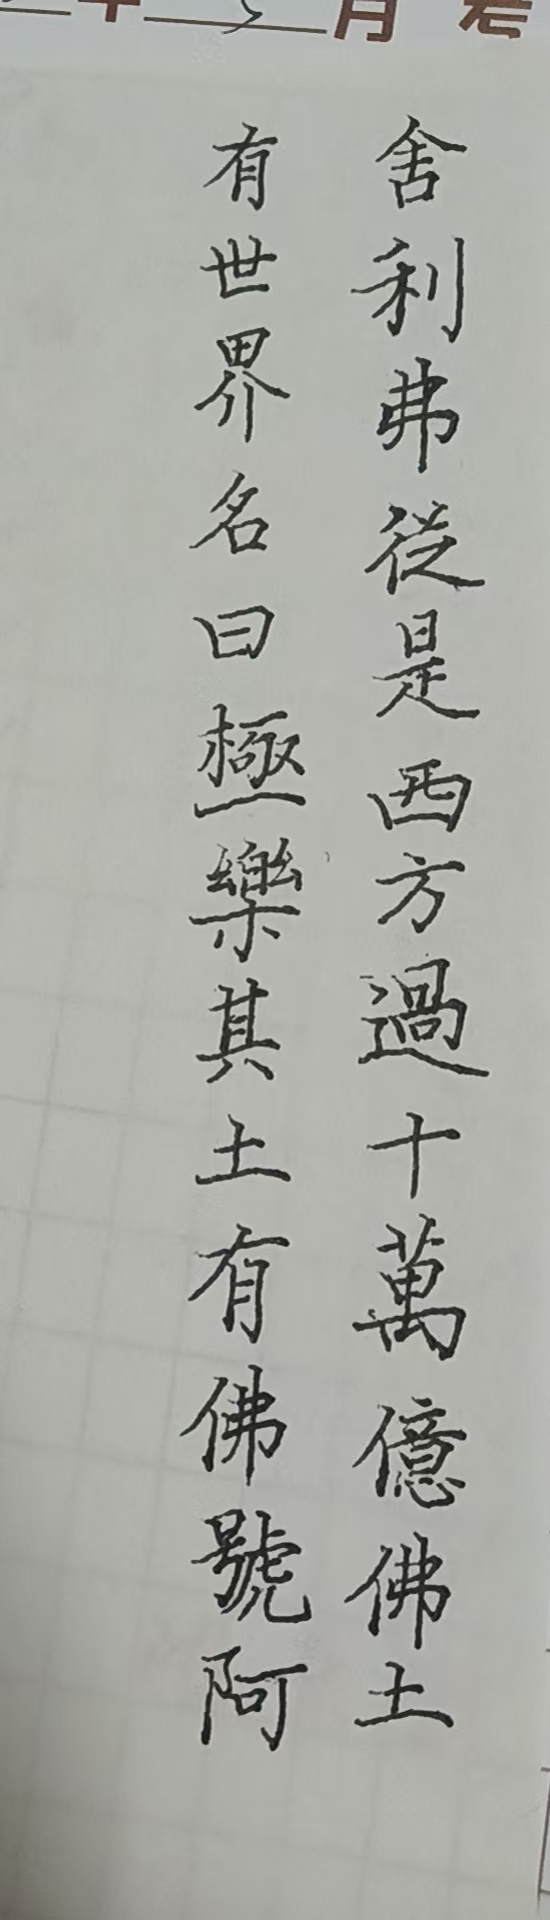 年 月 考
舍利弗從是西方過十萬億佛土
有世界名曰極樂其土有佛號阿